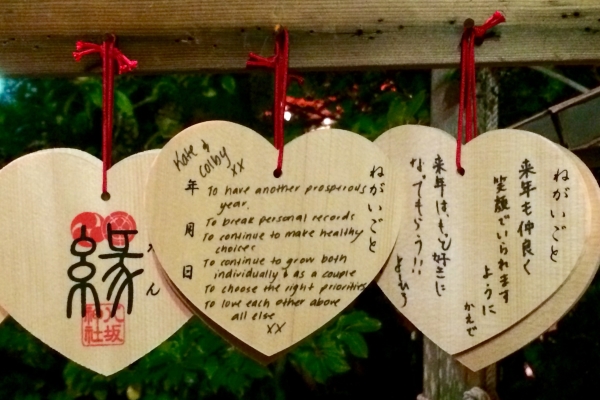 縁
八坂
神社
Kate &
Colby
xx
ねがいごと
年
月
日
To have another prosperous
year.
To break personal records
To continue to make healthy
choices
To continue to grow both
individually & as a couple
To choose the right priorities
To love each other above
all else
xx
ねがいごと
来年も仲良く
笑顔でいられます
ように
かえで
来年は、もっと好きに
なってもらう!!